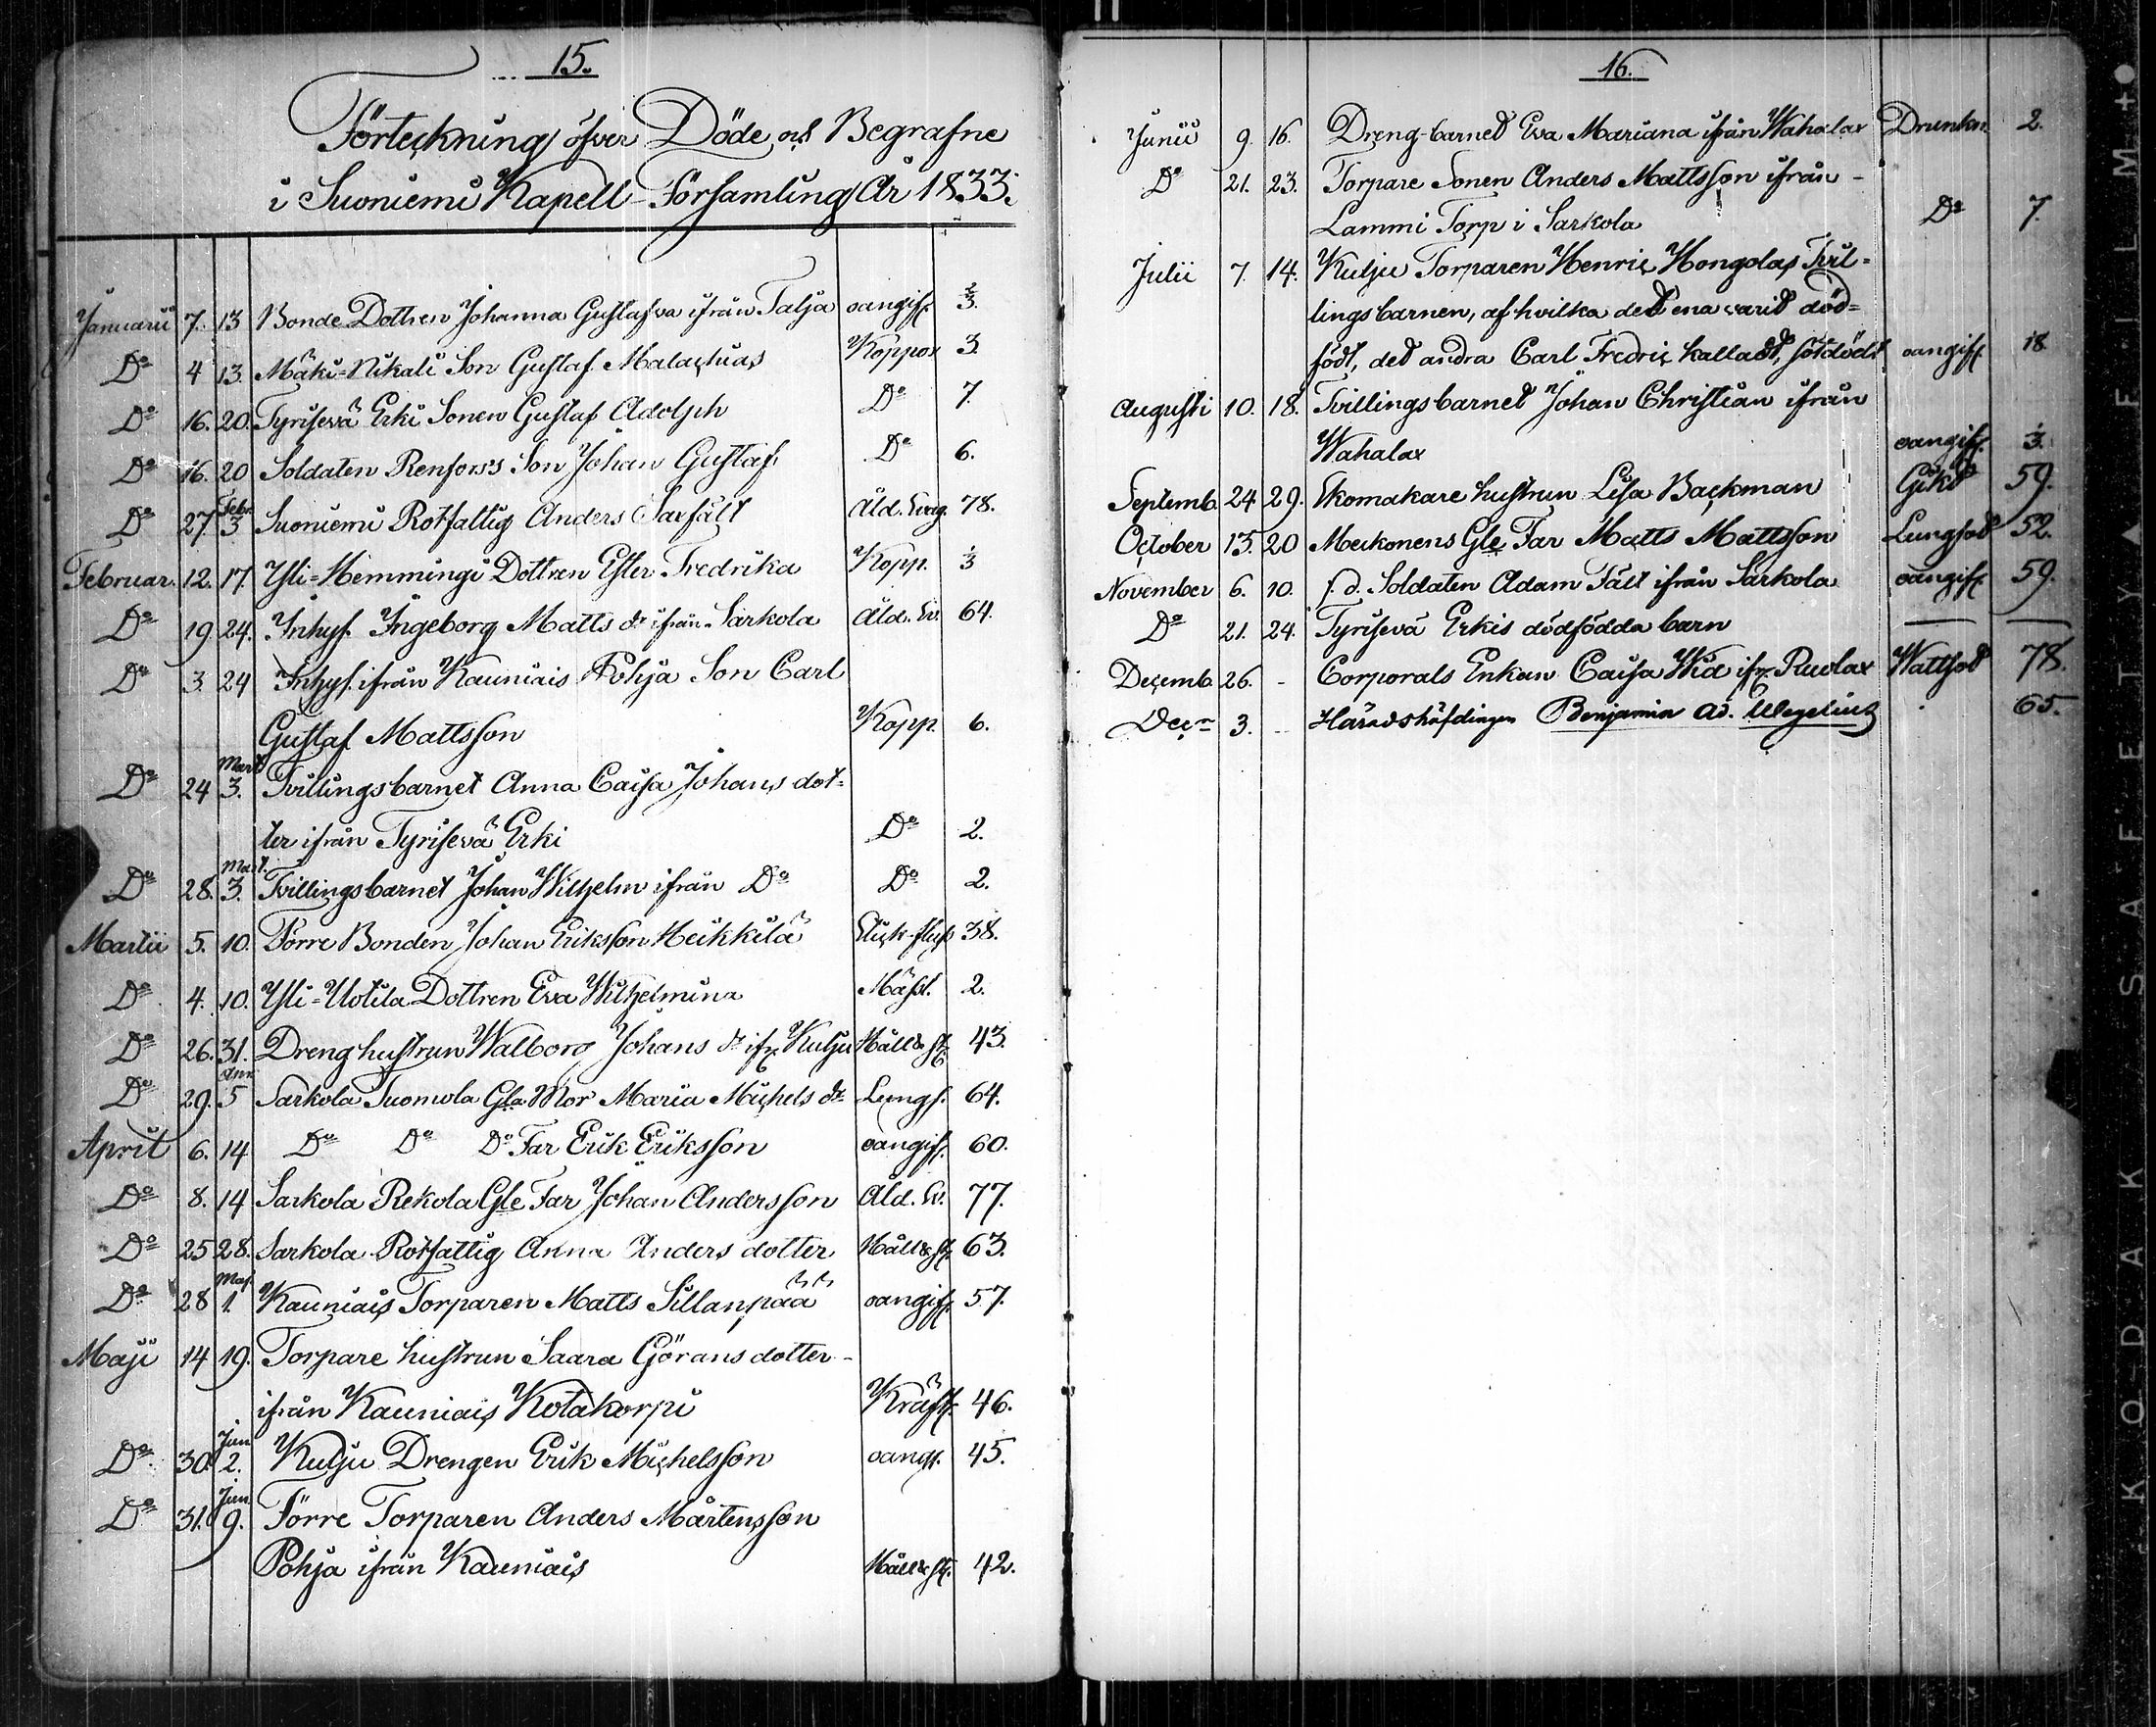 15.
Förteckning öfver Döde och Begrafne
i Suoniemi Kapell-Församling År 1833.
Januarii 7. 13 Bonde Dottren Johanna Gustafva ifrån Talja oangif. 2/3.
Do 4 13. Mäki-Nikali Son Gustaf Malachias Koppor 3.
Do 16. 20. Tyrisevä Erki Sonen Gustaf Adolph Do 7.
Do 16. 20 Soldaten Renfors's Son Johan Gustaf Do 6.
Do 27 Febr. 3 Suoniemi Rotfattig Anders Saxfält Åld. Svag. 78.
Februar. 12. 17. Yli-Hemmingi Dottren Ester Fredrika Kopp. 1/3
Do 19 24. Inhys. Ingeborg Matts dr ifrån Sarkola Åld. Sv. 64.
Do 3. 24 Inhys. ifrån Kauniais Pohja Son Carl
Gustaf Mattsson Kopp. 6.
Do 24 Mart 3. Tvillingsbarnet Anna Caisa Johans dot-
ter ifrån Tyrisevä Erki Do 2.
Do 28. Mart. 3. Tvillingsbarnet Johan Wilhelm ifrån Do Do 2.
Martii 5. 10. Förre Bonden Johan Eriksson Heikkilä 38.
Do 4. 10. Yli-Uotila Dottren Eva Wilhelmina Mässl. 2.
Do 26. 31. Dreng hustrun Walborg Johans dr ifr. Kulju Håll & st. 43.
Do 29. 5 Sarkola Tuomola Gla Mor Maria Michels dr Lungs. 64.
April 6. 14 Do Do Do Far Erik Eriksson oangif. 60.
Do 8. 14 Sarkola Rekola Gle Far Johan Andersson Åld. Sv. 77.
Do 25 28. Sarkola Rotfattig Anna Anders dotter Håll & st. 63.
Do 28 Maj. 1. Kauniais Torparen Matts Sillanpää oangif. 57.
Maji 14 19. Torpare hustrun Saara Görans dotter -
ifrån Kauniais Kotakorpi Kräft. 46.
Do 30. Jun 2. Kulju Drengen Erik Michelsson oangf. 45.
Do 31. Jun. 9. Förre Torparen Anders Mårtensson
Pohja ifrån Kauniais Håll & st. 42.
16.
Junii 9. 16. Dreng-barnet Eva Mariana ifrån Wahalax Drunkn. 2.
Do 21. 23. Torpare Sonen Anders Mattsson ifrån -
Lammi Torp i Sarkola Do 7.
Julii 7. 14. Kulju Torparen Henric Hongolas Tvil-
lingsbarnen, af hvilka det ena varit död-
födt, det andra Carl Fredric kalladt, oangif. 18
Augusti 10. 18. Tvillingsbarnet Johan Christian ifrån
Wahalax oangif. 1/3.
Septemb. 24 29. Skomakare hustrun Lisa Backman Gikt 59.
October 13. 20 Meikonens Gle Far Matts Mattsson Lungsot 52.
November 6. 10. f. d. Soldaten Adam Fält ifrån Sarkola oangif. 59.
Do 21. 24. Tyrisevä Erkis dödfödda barn
Decemb. 26. - Corporals Enkan Caisa Wid ifr. Ruolax Wattsot 78.
Decr 3. - Häradshöfdingen Benjamin Ad. Wegelius 65.
KODAK SAFETY FILM